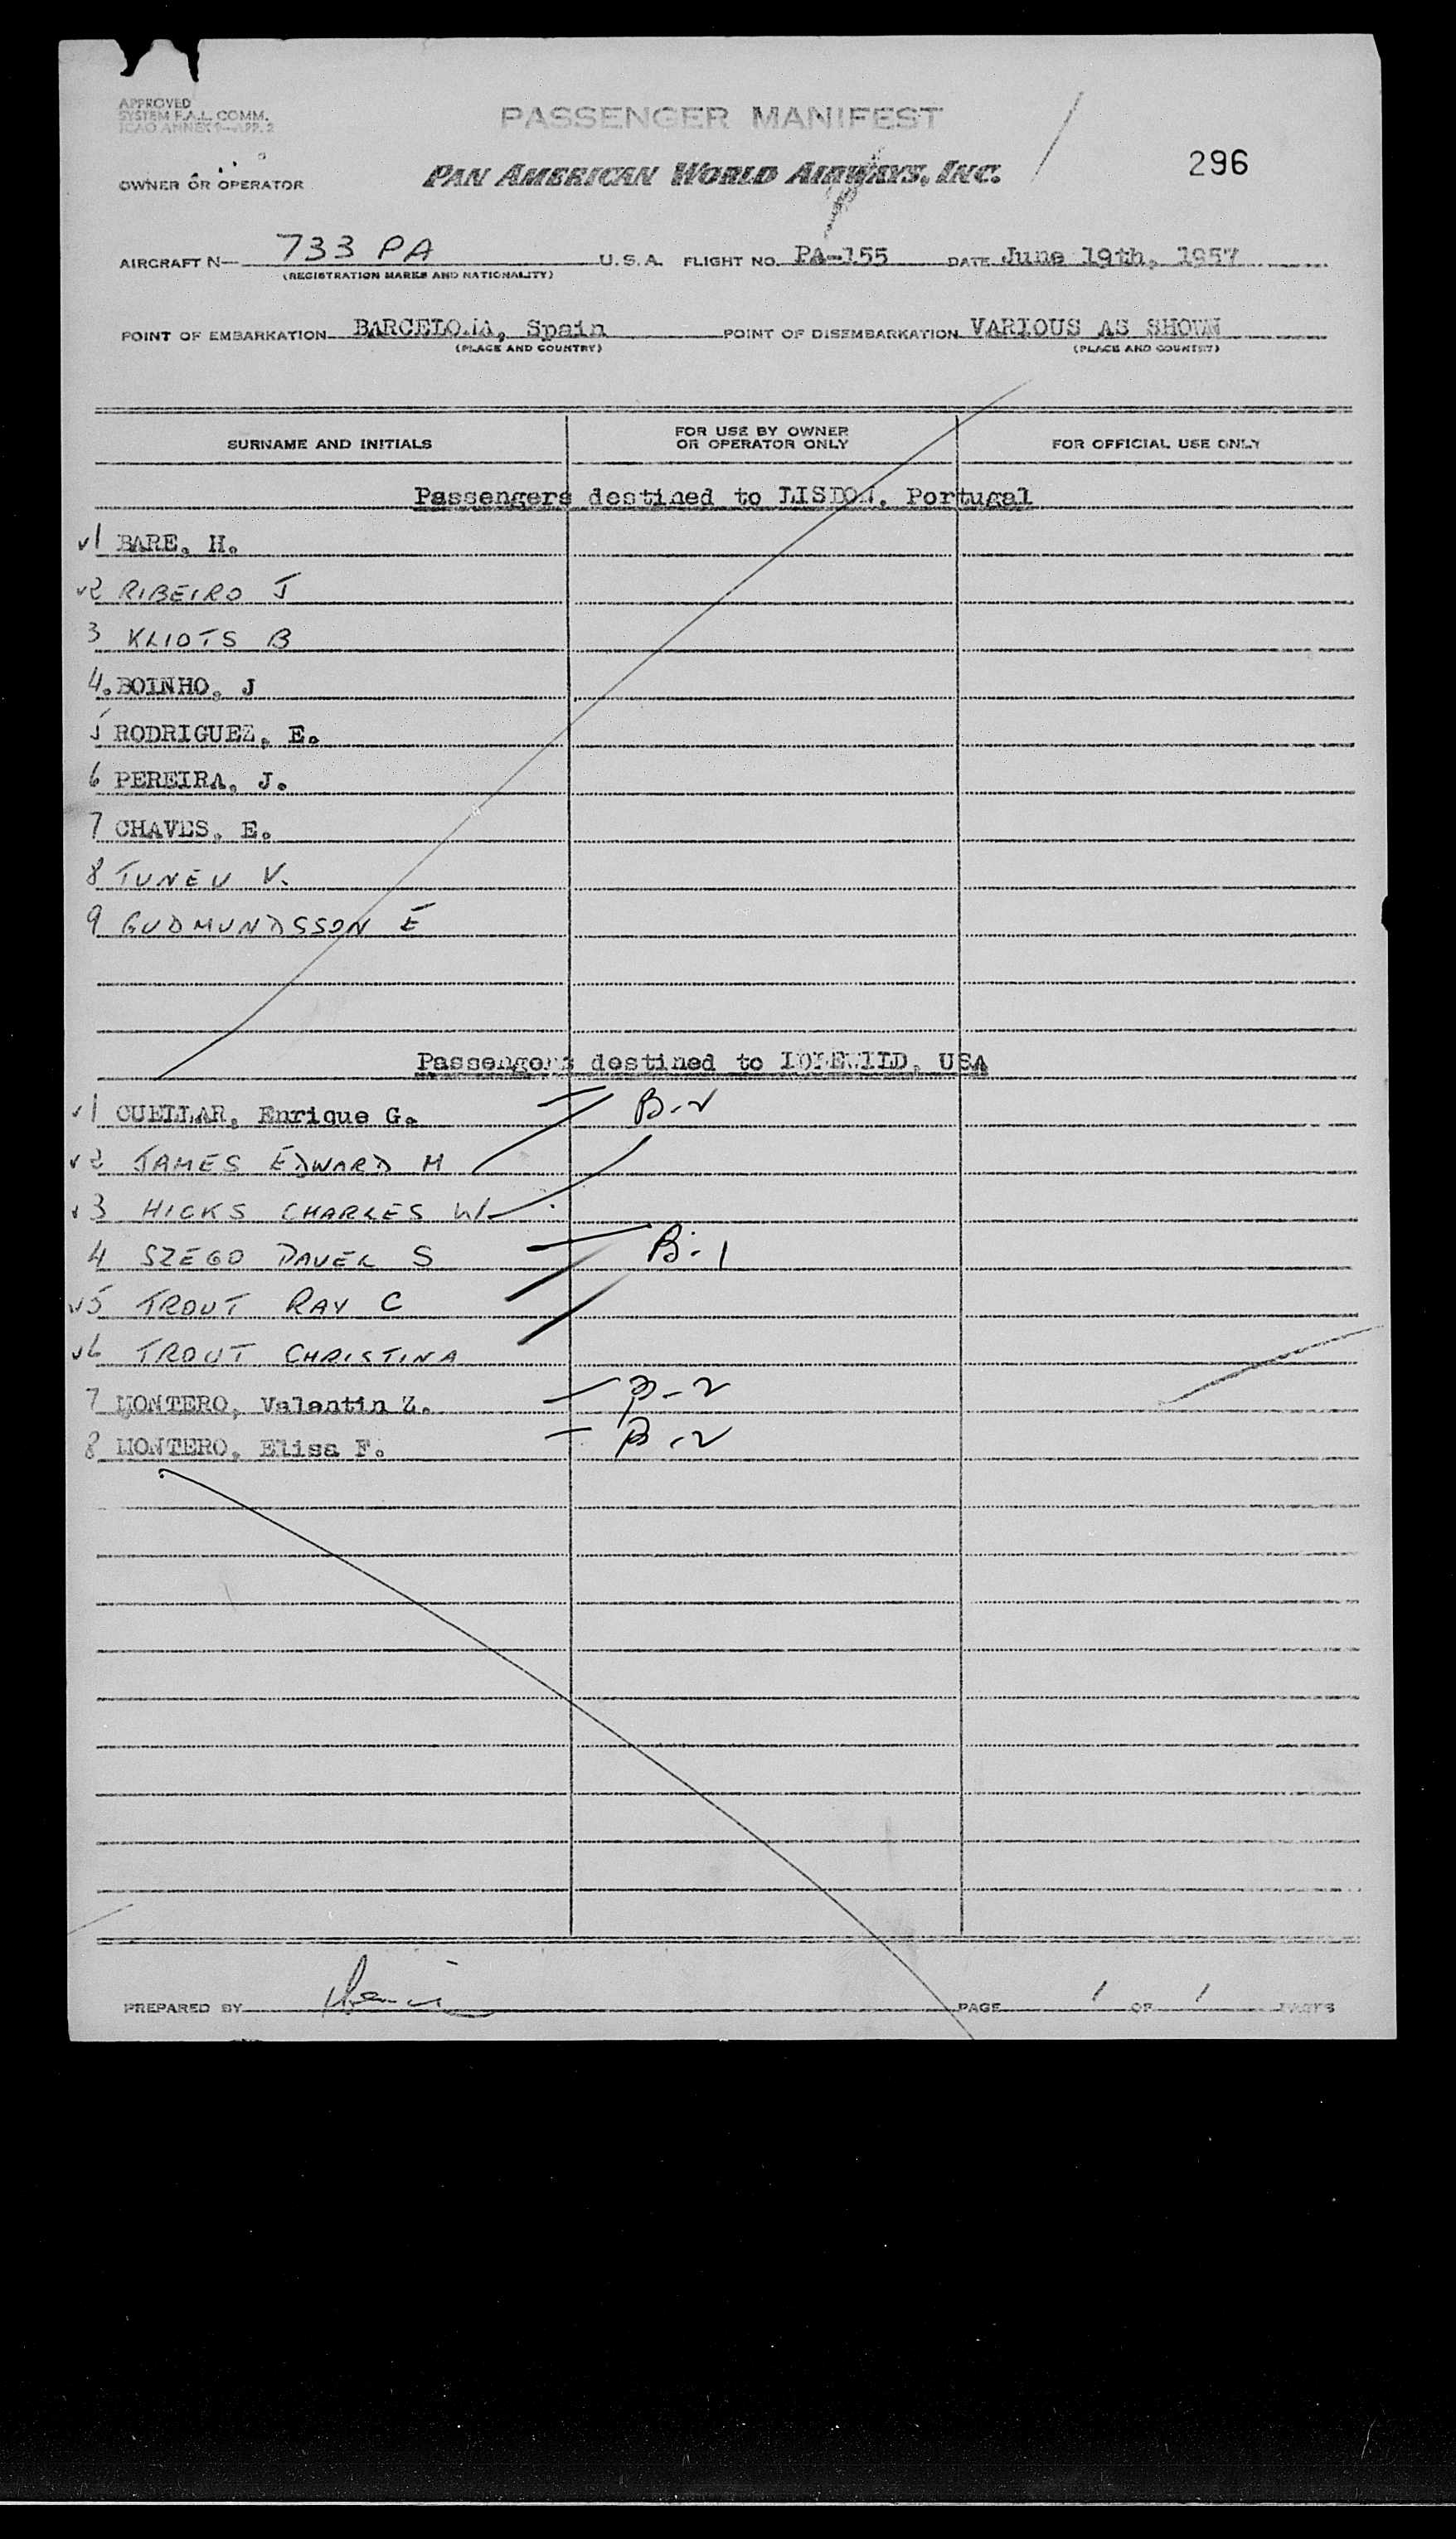 APPROVED
SYSTEM F.A.L. COMM.
ICAO ANNEX 9—APP. 2
PASSENGER MANIFEST
296
OWNER OR OPERATOR
PAN AMERICAN WORLD AIRWAYS, INC.
AIRCRAFT N— 733 PA U.S.A. FLIGHT NO. PA-155 DATE June 19th, 1957
(REGISTRATION MARKS AND NATIONALITY)
POINT OF EMBARKATION BARCELONA, Spain POINT OF DISEMBARKATION VARIOUS AS SHOWN
(PLACE AND COUNTRY) (PLACE AND COUNTRY)
SURNAME AND INITIALS FOR USE BY OWNER OR OPERATOR ONLY FOR OFFICIAL USE ONLY
Passengers destined to LISBON, Portugal
√1 BARE, H.
√2 RIBEIRO J
3 KLIOTS B
4. BOINHO, J
5 RODRIGUEZ, E.
6 PEREIRA, J.
7 CHAVES, E.
8 TUNEU V.
9 GUDMUNDSSON E
Passengers destined to IDLEWILD, USA
√1 CUELLAR, Enrique G. B-2
√2 JAMES EDWARD M
√3 HICKS CHARLES W
4 SZEGO PAVEL S B-1
√5 TROUT RAY C
√6 TROUT CHRISTINA
7 MONTERO, Valentin Z. B-2
8 MONTERO, Elisa F. B-2
PREPARED BY PAGE 1 OF 1 PAGES